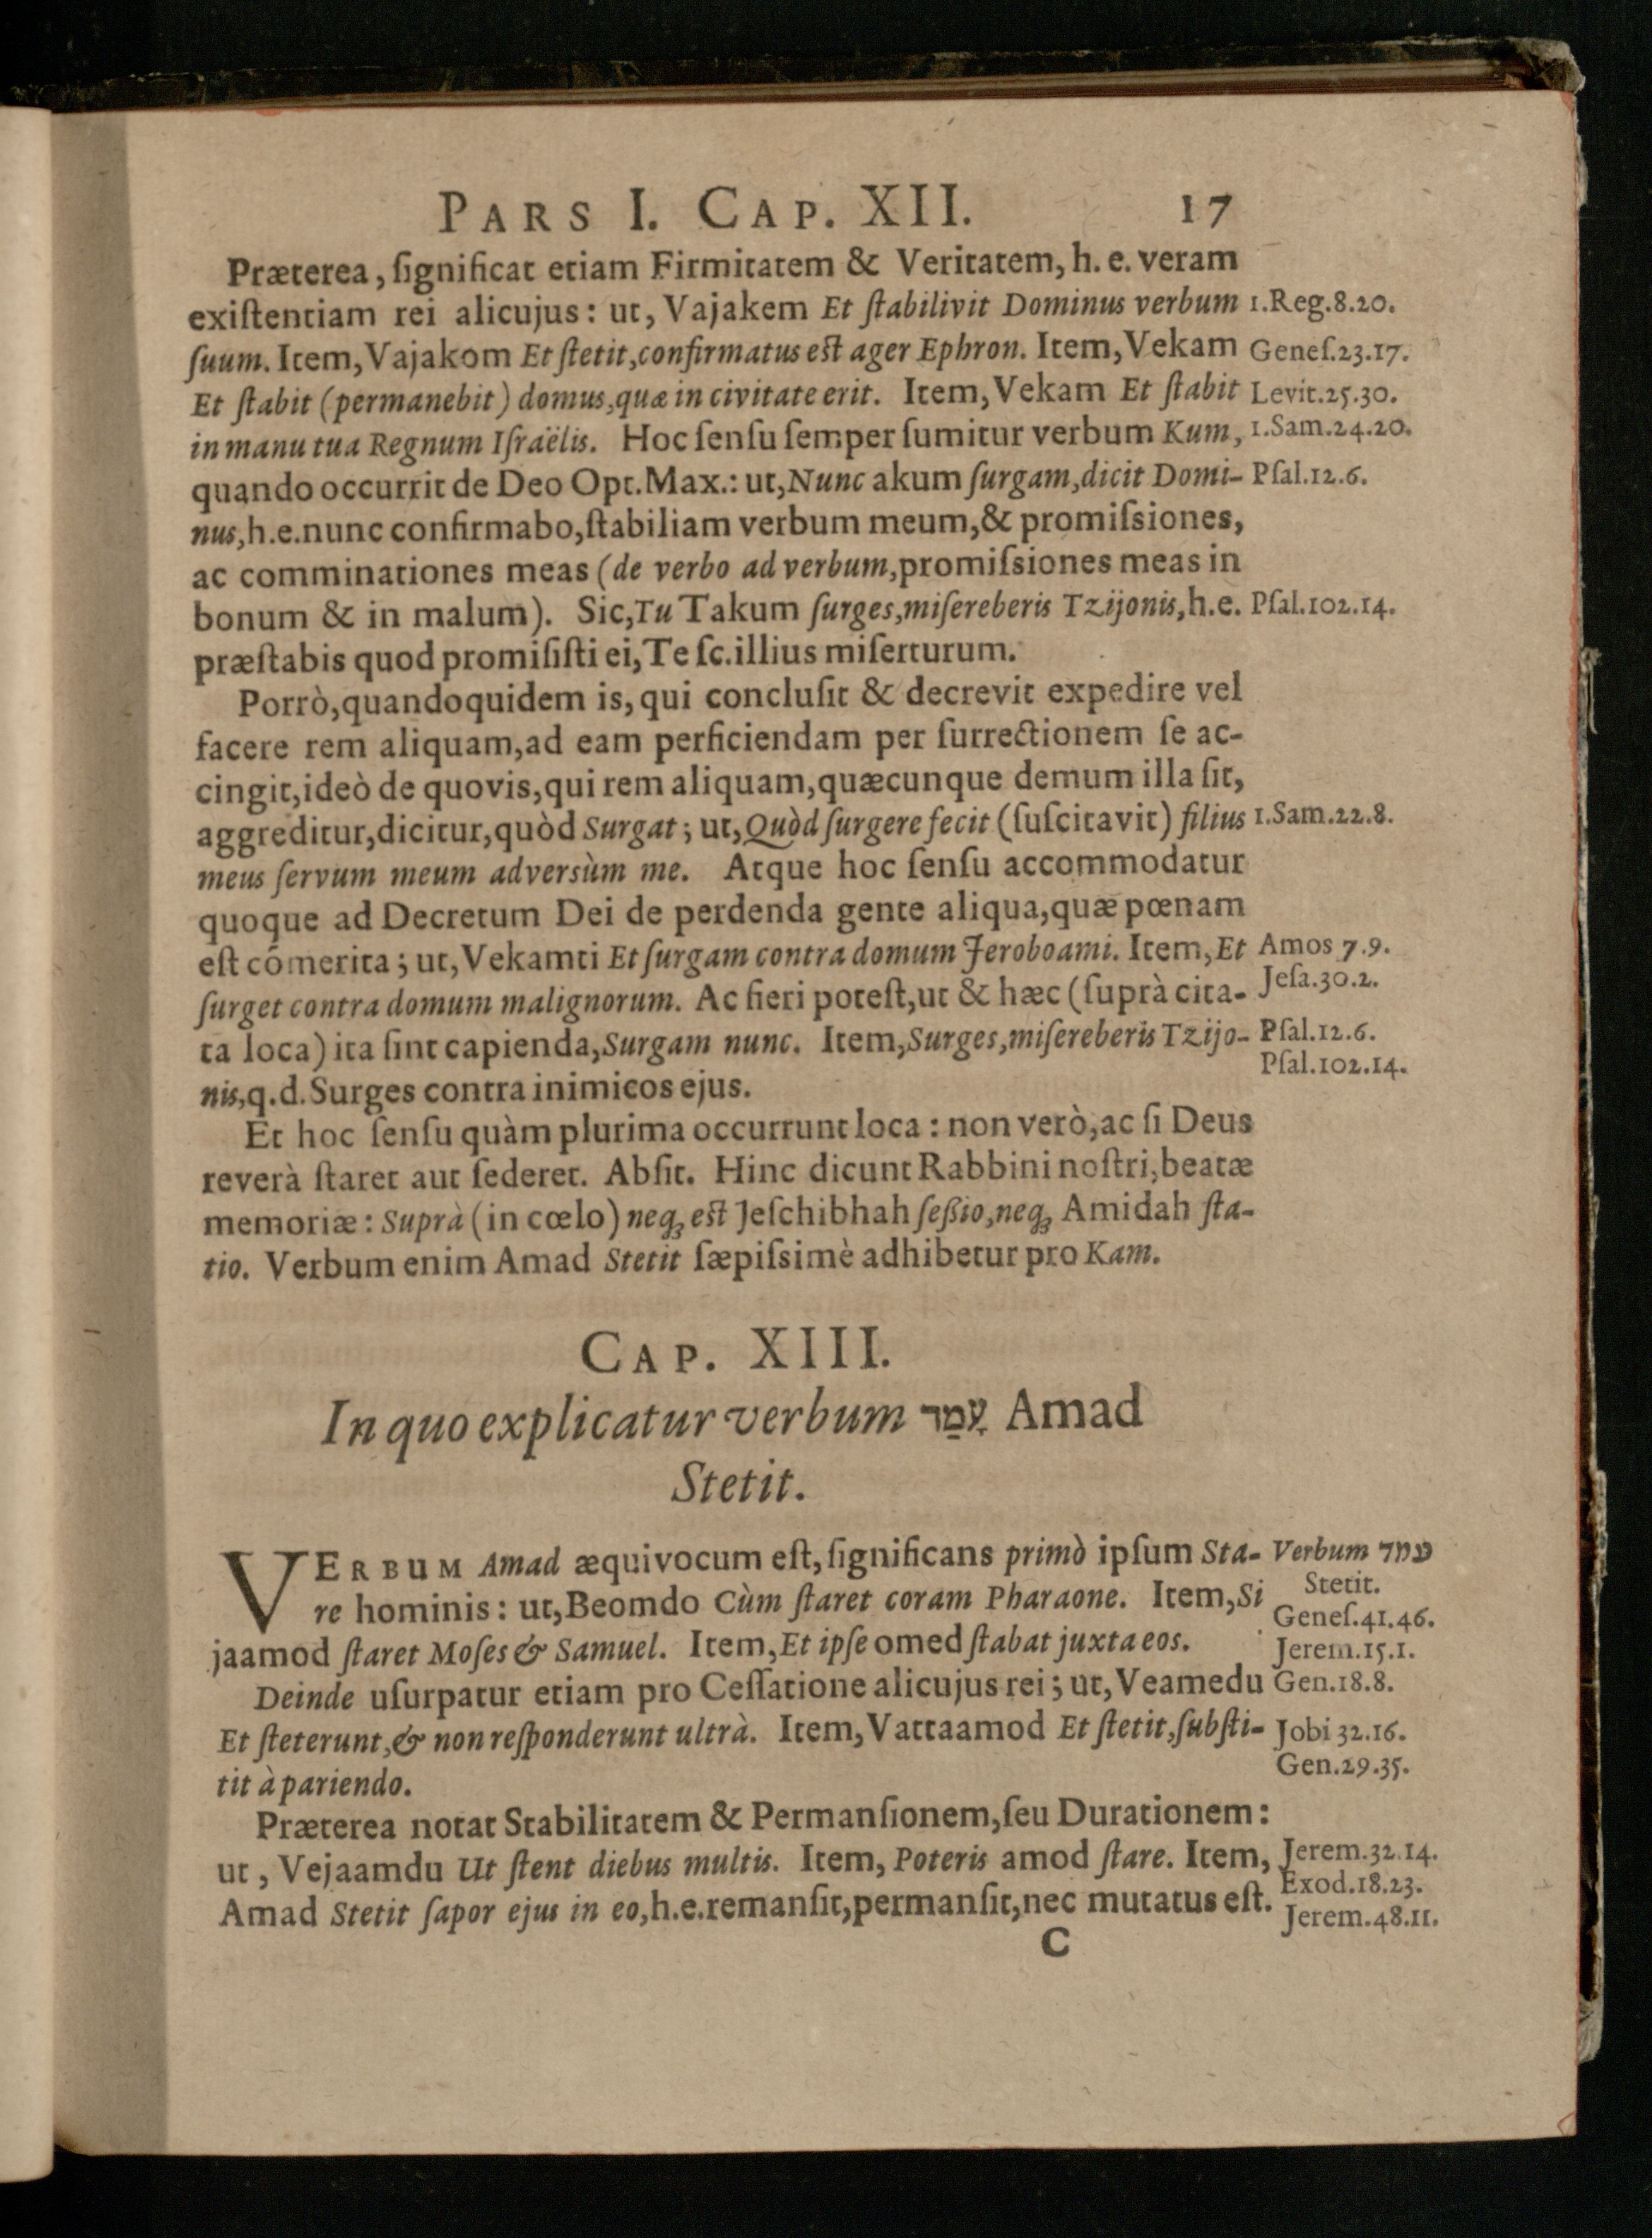 PARS I. CAP. XII. 17
Præterea, ſignificat etiam Firmitatem & Veritatem, h. e. veram
exiſtentiam rei alicujus: ut, Vajakem Et ſtabilivit Dominus verbum 1.Reg.8.20.
ſuum. Item, Vajakom Et ſtetit, confirmatus eſt ager Ephron. Item, Vekam Geneſ.23.17.
Et ſtabit (permanebit) domus, quæ in civitate erit. Item, Vekam Et ſtabit Levit.25.30.
in manu tua Regnum Iſraëlis. Hoc ſenſu ſemper ſumitur verbum Kum, 1.Sam.24.20.
quando occurrit de Deo Opt. Max.: ut, Nunc akum ſurgam, dicit Domi- Pſal.12.6.
nus, h.e. nunc confirmabo, ſtabiliam verbum meum, & promiſsiones,
ac comminationes meas (de verbo ad verbum, promiſsiones meas in
bonum & in malum). Sic, Tu Takum ſurges, miſereberis Tzijonis, h.e. Pſal.102.14.
præſtabis quod promiſiſti ei, Te ſc. illius miſerturum.
Porrò, quandoquidem is, qui concluſit & decrevit expedire vel
facere rem aliquam, ad eam perficiendam per ſurrectionem ſe ac-
cingit, ideò de quovis, qui rem aliquam, quæcunque demum illa ſit,
aggreditur, dicitur, quòd Surgat; ut, Quòd ſurgere fecit (ſuſcitavit) filius 1.Sam.22.8.
meus ſervum meum adversùm me. Atque hoc ſenſu accommodatur
quoque ad Decretum Dei de perdenda gente aliqua, quæ pœnam
eſt cōmerita; ut, Vekamti Et ſurgam contra domum Jeroboami. Item, Et Amos 7.9.
ſurget contra domum malignorum. Ac fieri poteſt, ut & hæc (ſuprà cita- Jeſa.30.2.
ta loca) ita ſint capienda, Surgam nunc. Item, Surges, miſereberis Tzijo- Pſal.12.6.
nis, q.d. Surges contra inimicos ejus. Pſal.102.14.
Et hoc ſenſu quàm plurima occurrunt loca: non verò, ac ſi Deus
reverà ſtaret aut ſederet. Abſit. Hinc dicunt Rabbini noſtri, beatæ
memoriæ: Suprà (in cœlo) neqꝫ eſt Jeſchibhah ſeßio, neqꝫ Amidah ſta-
tio. Verbum enim Amad Stetit ſæpiſsimè adhibetur pro Kam.
CAP. XIII.
In quo explicatur verbum עָמַד Amad
Stetit.
VERBUM Amad æquivocum eſt, ſignificans primò ipſum Sta- Verbum עמד
re hominis: ut, Beomdo Cùm ſtaret coram Pharaone. Item, Si Stetit. Geneſ.41.46.
jaamod ſtaret Moſes & Samuel. Item, Et ipſe omed ſtabat juxta eos. Jerem.15.1.
Deinde uſurpatur etiam pro Ceſſatione alicujus rei; ut, Veamedu Gen.18.8.
Et ſteterunt, & non reſponderunt ultrà. Item, Vattaamod Et ſtetit, ſubſti- Jobi 32.16.
tit à pariendo. Gen.29.35.
Præterea notat Stabilitatem & Permanſionem, ſeu Durationem:
ut, Vejaamdu Ut ſtent diebus multis. Item, Poteris amod ſtare. Item, Jerem.32.14. Exod.18.23.
Amad Stetit ſapor ejus in eo, h.e. remanſit, permanſit, nec mutatus eſt. Jerem.48.11.
C